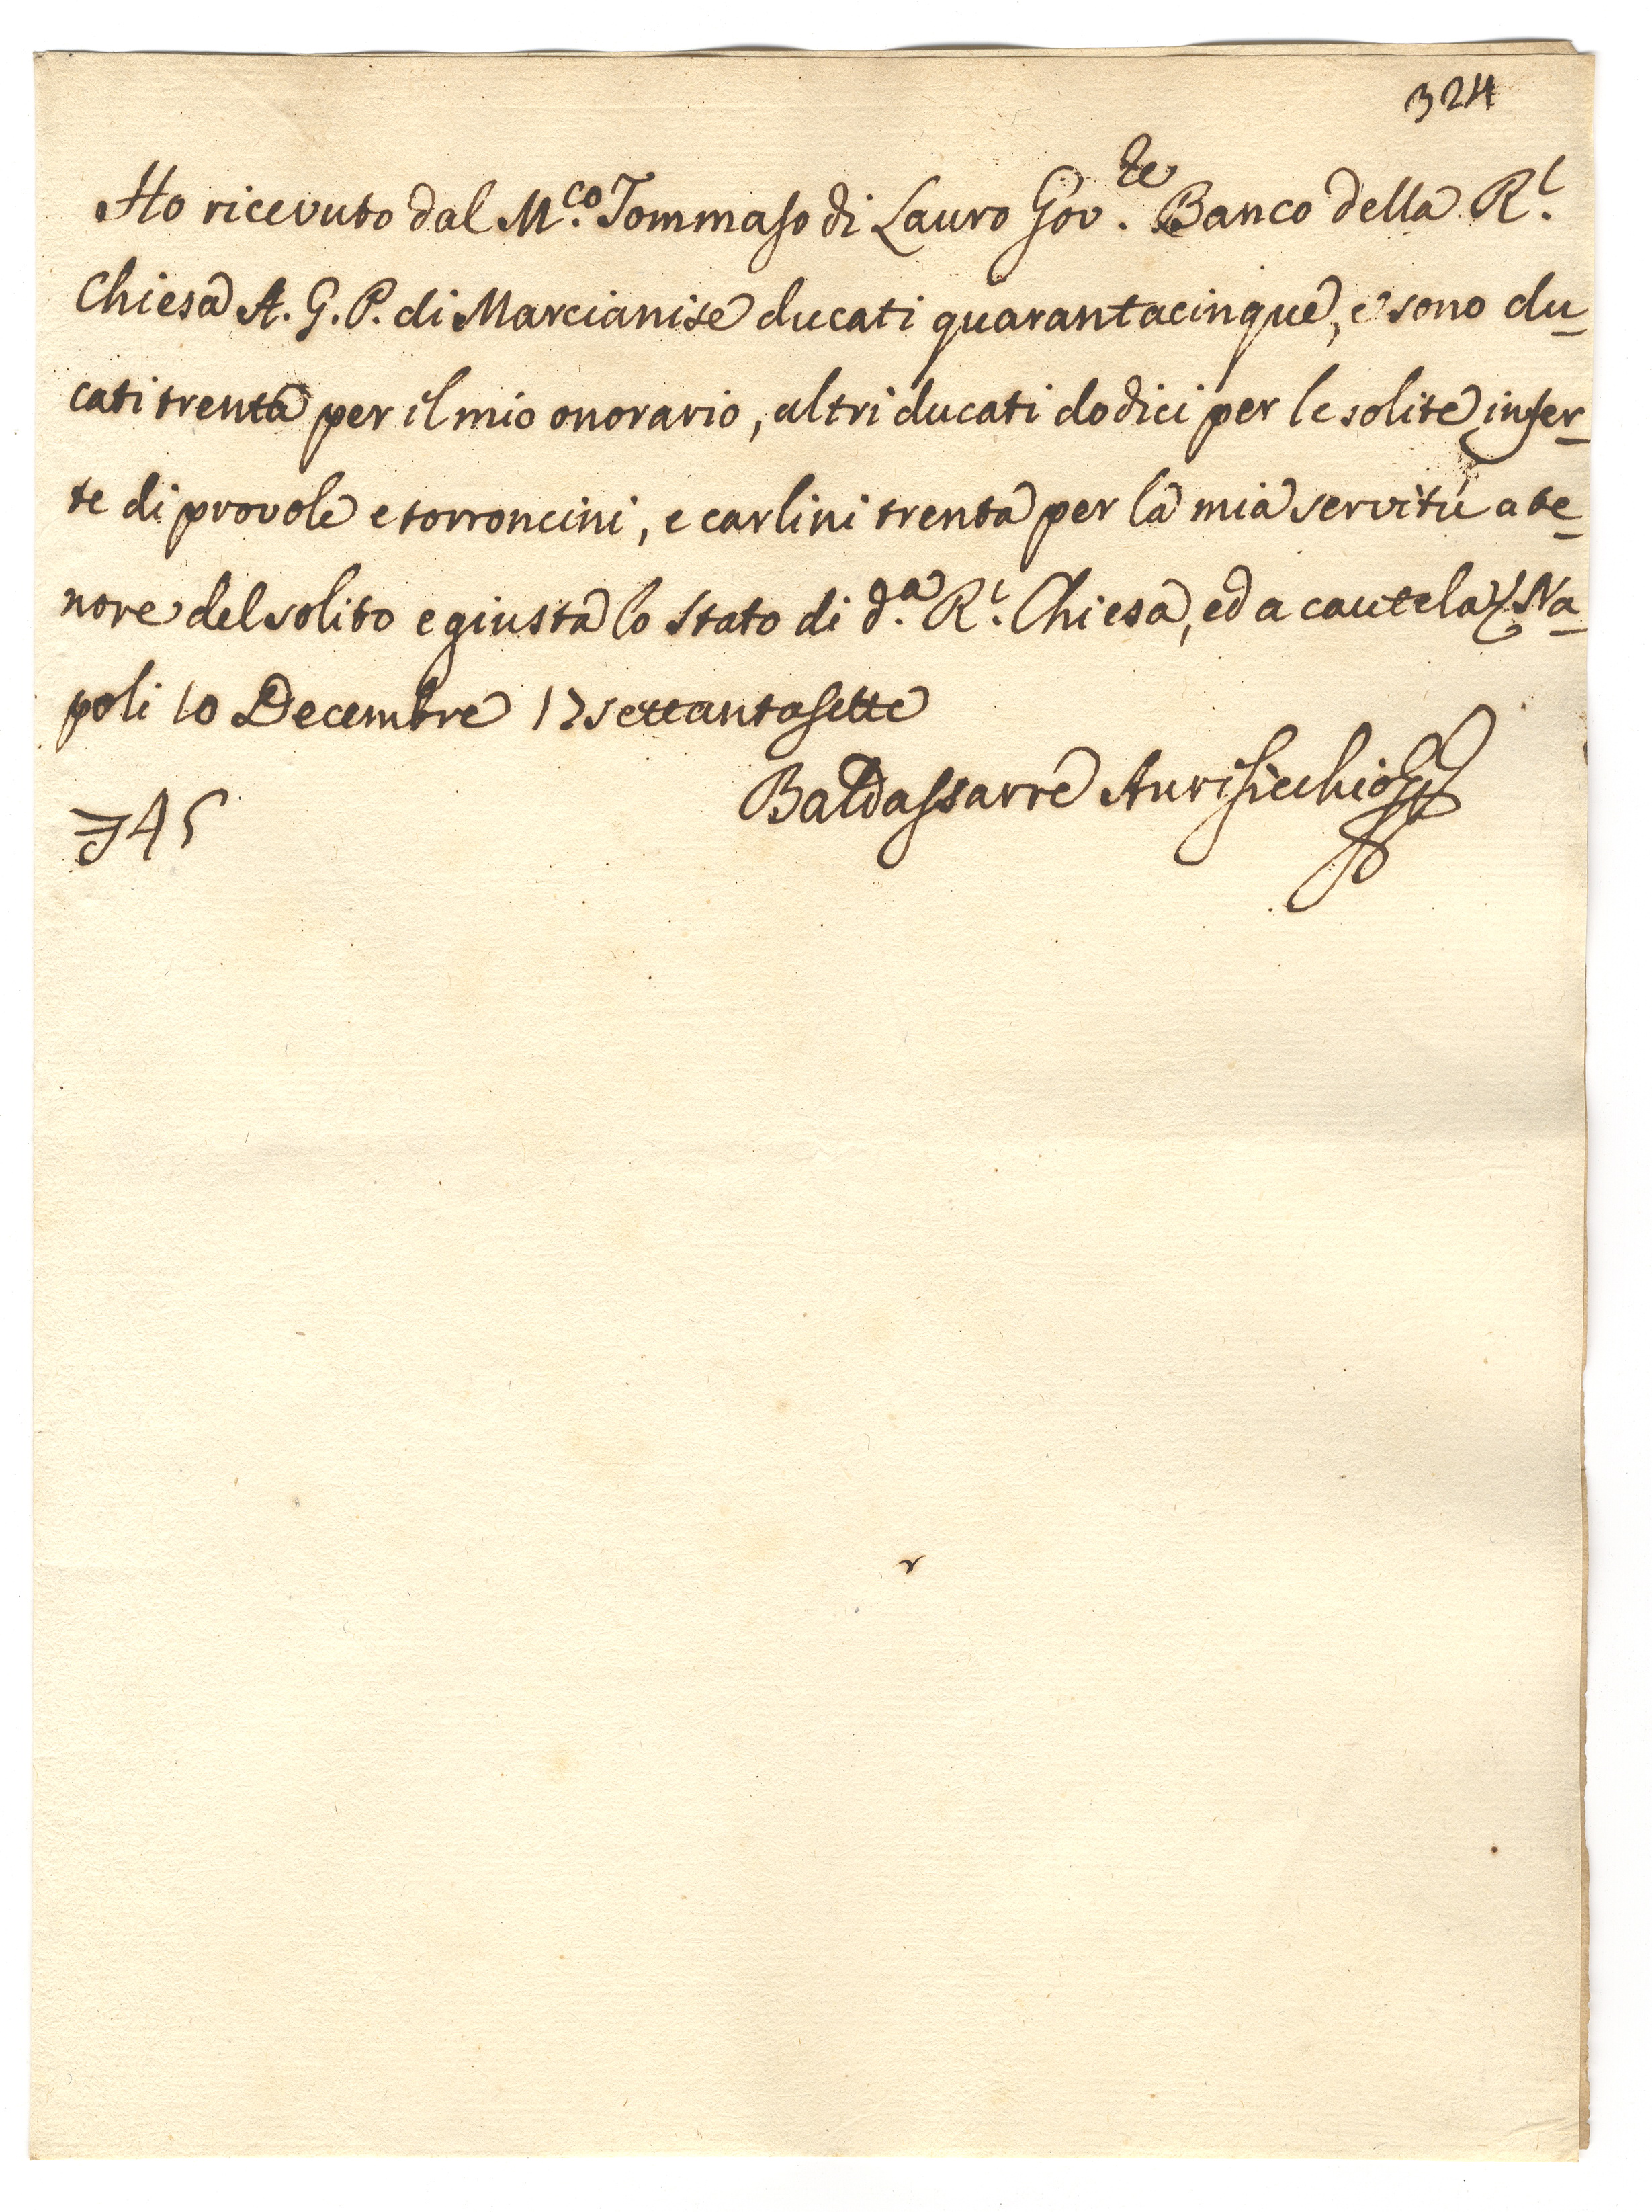 324
Ho ricevuto dal M.co Tommaso di Lauro Gov.te Banco della R.l
Chiesa A. G. P. di Marcianise ducati quarantacinque, e sono du_
cati trenta per il mio onorario, altri ducati dodici per le solite infer_
te di provole e torroncini, e carlini trenta per la mia servitù a te_
nore del solito e giusta lo stato di d.a R.l Chiesa, ed a cautela Na_
poli 10 Decembre 17settantasette
Baldassarre Aurisicchio
45